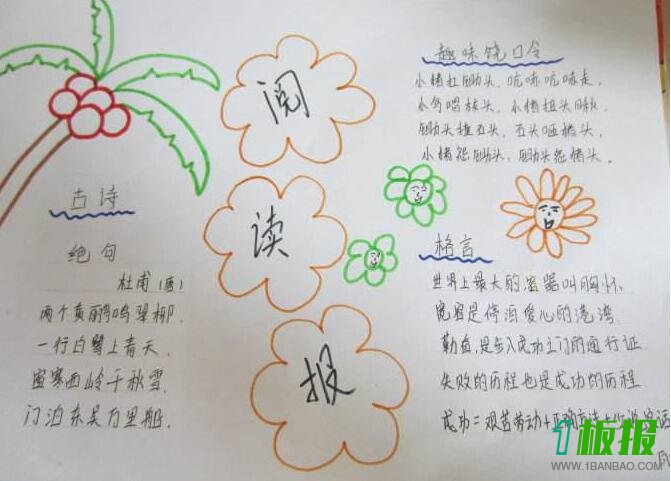 阅
读
报
趣味饶口令
小猪扛锄头，吭哧吭哧走，
小鸟唱枝头，小猪扭头瞅，
锄头撞石头，石头砸猪头，
小猪怨锄头，锄头怨猪头。
古诗
绝句
杜甫（唐）
两个黄鹂鸣翠柳.
一行白鹭上青天.
窗寒西岭千秋雪.
门泊东吴万里船.
格言
世界上最大的容器叫胸怀
宽容是停泊爱心的港湾
勤奋，是步入成功之门的通行证
失败的历程也是成功的历程
成功=艰苦劳动+正确方法+少说空话
1板报
WWW.1BANBAO.COM